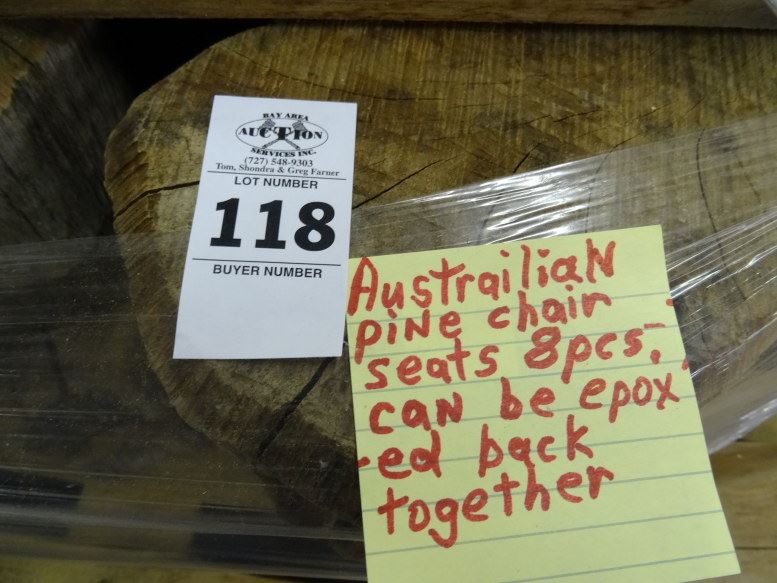 BAY AREA
AUCTION
SERVICES INC.
(727) 548-9303
Tom, Shondra & Greg Farner
LOT NUMBER
118
BUYER NUMBER
AustrailiaN
piNe chair
seats 8pcs,
caN be epox
-ed back
together